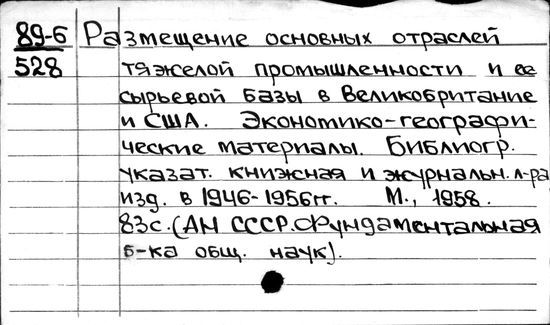 89-6 Размещение основных отраслей
528 тяжелой промышленности и ее
сырьевой базы в Великобритание
и США. Экономико-географи-
ческие материалы. Библиогр.
указат. книжная и журнальн. л-ра
изд. в 1946-1956гг. М., 1958.
83с. (АН СССР. Фундаментальная
б-ка общ. наук).